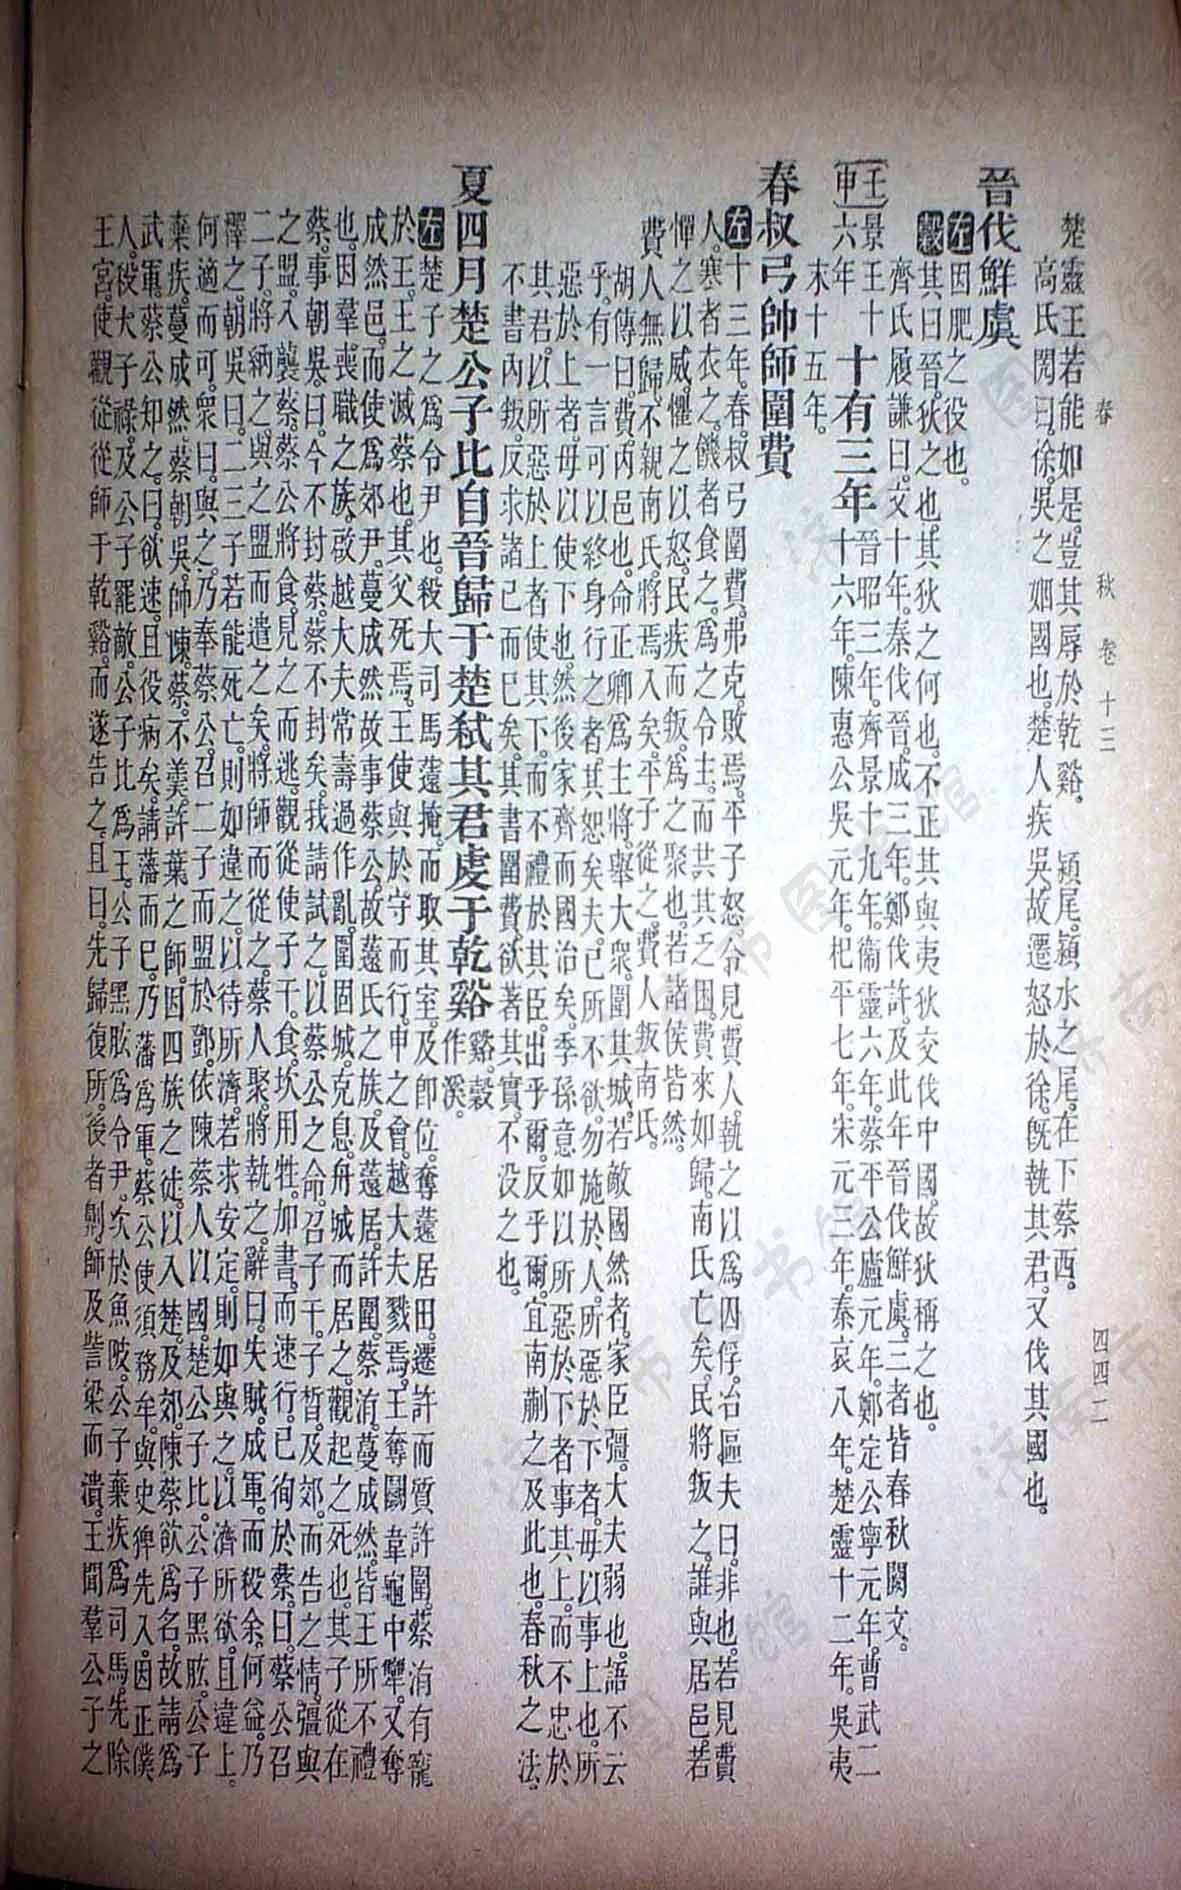 春　秋　卷十三　四四二
楚靈王若能如是。豈其辱於乾谿。　潁尾。潁水之尾。在下蔡西。
高氏閌曰。徐。吳之姻國也。楚人疾吳。故遷怒於徐。旣執其君。又伐其國也。
晉伐鮮虞
左因肥之役也。
穀其曰晉。狄之也。其狄之何也。不正其與夷狄交伐中國。故狄稱之也。
齊氏履謙曰。文十年。秦伐晉。成三年。鄭伐許。及此年晉伐鮮虞。三者皆春秋闕文。
壬申
景王十六年
十有三年
晉昭三年。齊景十九年。衞靈六年。蔡平公廬元年。鄭定公寧元年。曹武二
十六年。陳惠公吳元年。杞平七年。宋元三年。秦哀八年。楚靈十二年。吳夷
末十五年。
春叔弓帥師圍費
左十三年。春。叔弓圍費。弗克。敗焉。平子怒。令見費人。執之以爲囚俘。冶區夫曰。非也。若見費
人。寒者衣之。饑者食之。爲之令主。而共其乏困。費來如歸。南氏亡矣。民將叛之。誰與居邑。若
憚之以威。懼之以怒。民疾而叛。爲之聚也。若諸侯皆然。
費人無歸。不親南氏。將焉入矣。平子從之。費人叛南氏。
胡傳曰。費。內邑也。命正卿爲主將。舉大衆。圍其城。若敵國然者。家臣彊。大夫弱也。語不云
乎。有一言可以終身行之者。其恕矣夫。已所不欲。勿施於人。所惡於下者。毋以事上也。所
惡於上者。毋以使下也。然後家齊而國治矣。季孫意如以所惡於下者事其上。而不忠於
其君。以所惡於上者使其下。而不禮於其臣。出乎爾。反乎爾。宜南蒯之及此也。春秋之法。
不書內叛。反求諸己而已矣。其書圍費。欲著其實。不没之也。
夏四月楚公子比自晉歸于楚弒其君虔于乾谿
谿。穀
作溪。
左楚子之爲令尹也。殺大司馬薳掩。而取其室。及卽位。奪薳居田。遷許而質許圍。蔡洧有寵
於王。王之滅蔡也。其父死焉。王使與於守而行。申之會。越大夫戮焉。王奪鬬韋龜中犫。又奪
成然邑。而使爲郊尹。蔓成然故事蔡公。故薳氏之族。及薳居。許圍。蔡洧。蔓成然。皆王所不禮
也。因羣喪職之族。啟越大夫常壽過作亂。圍固城。克息舟城而居之。觀起之死也。其子從在
蔡。事朝吳。曰。今不封蔡。蔡不封矣。我請試之。以蔡公之命。召子干。子晳。及郊。而告之情。彊與
之盟。入襲蔡。蔡公將食。見之而逃。觀從使子干食。坎用牲。加書。而速行。已徇於蔡。曰。蔡公召
二子。將納之。與之盟而遣之矣。將師而從之。蔡人聚。將執之。辭曰。失賊。成軍。而殺余。何益。乃
釋之。朝吳曰。二三子若能死亡。則如違之。以待所濟。若求安定。則如與之。以濟所欲。且違上。
何適而可。衆曰。與之。乃奉蔡公。召二子而盟於鄧。依陳蔡人以國。楚公子比。公子黑肱。公子
棄疾。蔓成然。蔡朝吳。帥陳。蔡。不羹。許。葉之師。因四族之徒。以入楚。及郊。陳蔡欲爲名。故請爲
武軍。蔡公知之。曰。欲速。且役病矣。請藩而已。乃藩爲軍。蔡公使須務牟。與史猈先入。因正僕
人。殺大子祿。及公子罷敵。公子比爲王。公子黑肱爲令尹。次於魚陂。公子棄疾爲司馬。先除
王宮。使觀從從師于乾谿。而遂告之。且曰。先歸復所。後者劓。師及訾梁而潰。王聞羣公子之